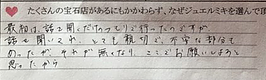 たくさんの宝石店があるにもかかわらず、なぜジュエルミキを選んで頂
最初は、話を聞くだけのつもりで行ったのですが
話を聞いて、とても親切で、不安な部分も
あったが、それが無くなり、ここでお願いしようと
思ったから